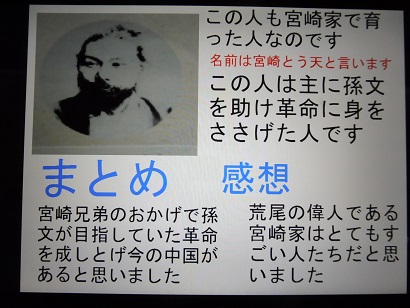 この人も宮崎家で育
った人なのです
名前は宮崎とう天と言います
この人は主に孫文
を助け革命に身を
ささげた人です
まとめ
宮崎兄弟のおかげで孫
文が目指していた革命
を成しとげ今の中国が
あると思いました
感想
荒尾の偉人である
宮崎家はとてもす
ごい人たちだと思
いました